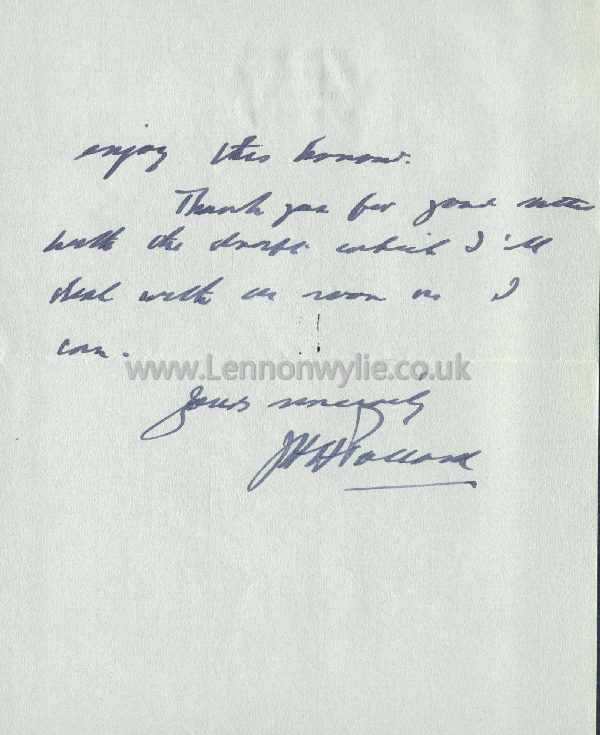 enjoy this honour.
Thank you for your letter
with the draft which I'll
deal with as soon as I
can.
www.Lennonwylie.co.uk
Yours sincerely